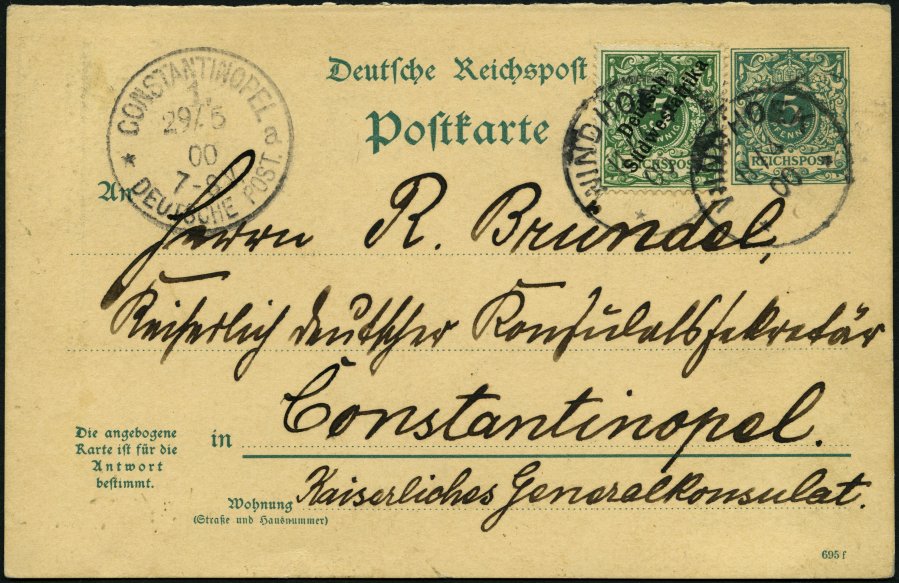 Deutsche Reichspost
Postkarte
CONSTANTINOPEL
1.
29/5
00
7-8V.
* DEUTSCHE POST. a
5
Deutsch-
Südwestafrika
REICHSPOST
WINDHOEK
00
*
5
PFENNIG
REICHSPOST
WINDHOEK
00
*
An
Herrn R. Brundel,
Kaiserlich deutscher Konsulatssekretär
in Constantinopel.
Die angebogene
Karte ist für die
Antwort
bestimmt.
Wohnung Kaiserliches Generalkonsulat.
(Straße und Hausnummer)
695f